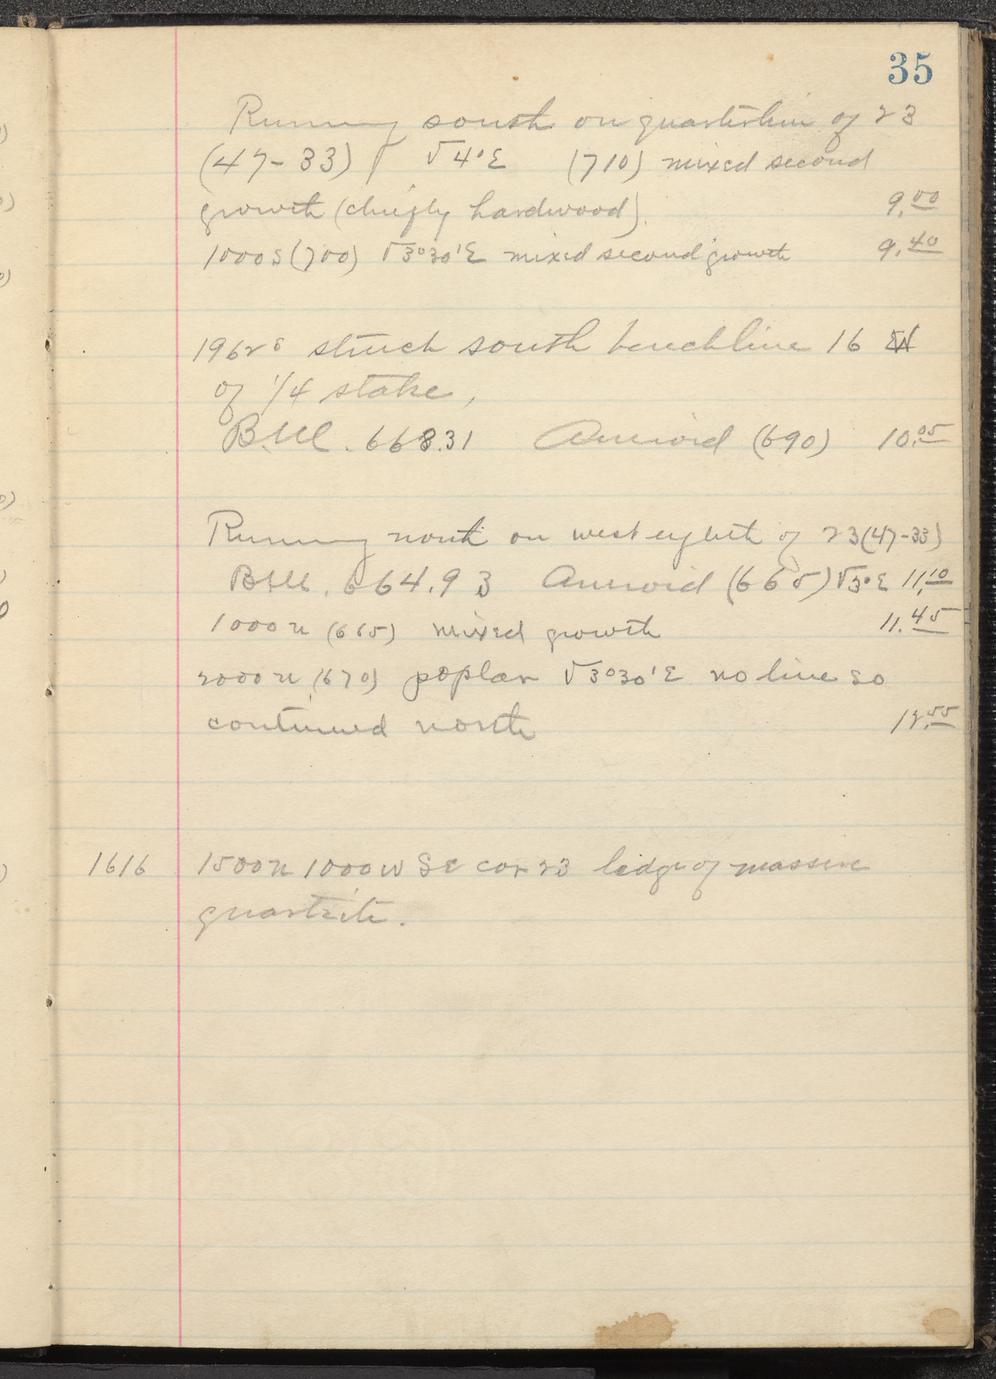 35
Running south on quarterline of 23
(47-33) √4°E (710) mixed second
growth (chiefly hardwood). 9.00
1000S (700) √3°30'E mixed second growth 9.40
1962 S struck south benchline 16 W
of 1/4 stake,
B.M. 668.31 Aneroid (690) 10.05
Running north on west eighth of 23 (47-33)
B.M. 664.93 Aneroid (665) √3°E 11.10
1000 N (665) mixed growth 11.45
2000 N (670) poplar √3°30'E no line so
continued north 12.55
1616 1500 N 1000 W SE cor 23 ledge of massive
quartzite.